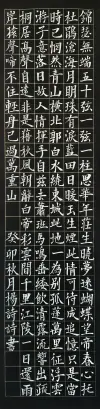 錦瑟無端五十弦一弦一柱思華年莊生曉夢迷蝴蝶望帝春心托
杜鵑滄海月明珠有淚藍田日暖玉生煙此情可待成追憶只是當
時已惘然青山橫北郭白水繞東城此地一為別孤蓬萬里征浮雲
游子意落日故人情揮手自茲去蕭蕭班馬鳴垂緌飲清露流響出疏
桐居高聲自遠非是藉秋風朝辭白帝彩雲間千里江陵一日還兩
岸猿聲啼不住輕舟已過萬重山 癸卯秋月楊詩詩書